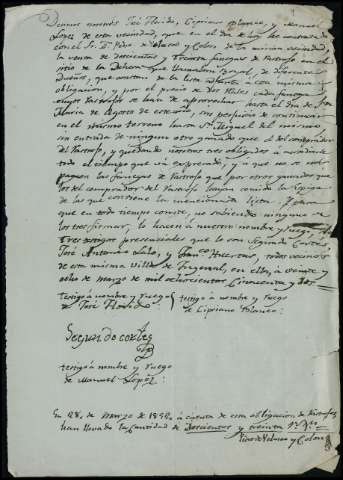 Decimos nosotros José Florido, Cipriano Blanco, y Manuel
Lopez de esta vecindad, que en el dia de hoy
con el Sr. Dn. Pedro de Velasco y Colon de la misma vecindad,
la venta de doscientas y treinta fanegas de Rastrojo en el
sitio de la de diferentes
dueños, que constan de la lista
obligacion, y por el precio de dos reales cada fanega,
cuyos Rastrojos se han de aprovechar hasta el dia de Sta.
Maria de Agosto de este año, sin perjuicio de continuar
en el mismo terreno hasta Sn. Miguel del mismo
sin entrada de ninguno otro ganado que el del comprador
del Rastrojo, y quedando nosotros tres obligados à
todo el tiempo que và espresado, y à que no se nos
paguen las fanegas de Rastrojo que por otros ganados que
los del comprador del Rastrojo hayan comido la espiga
de las que contiene la mencionada lista. Y para
que en todo tiempo conste, no sabiendo ninguno de
los tres firmar, lo hacen à nuestro nombre y ruego,
tres testigos presenciales que lo son Segundo Cortés,
José Antonio y Juan Huertas, todos vecinos
de esta misma villa de Fregenal, en ella, à veinte y
ocho de marzo de mil ochocientos cincuenta y dos
testigo à nombre y ruego
de José Florido
testigo à nombre y ruego
de Cipriano Blanco
Segundo cortes
testigo à nombre y ruego
de Manuel Lopez
En 28. de Marzo de 1852. à cuenta de esta obligacion de Rastrojos
han llevado la cantidad de doscientos y treinta rs. vn.
Velasco y Colon